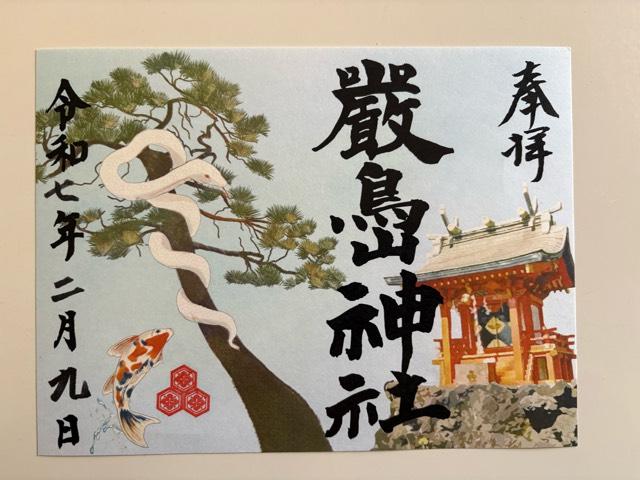 奉拝
嚴島神社
令和七年二月九日